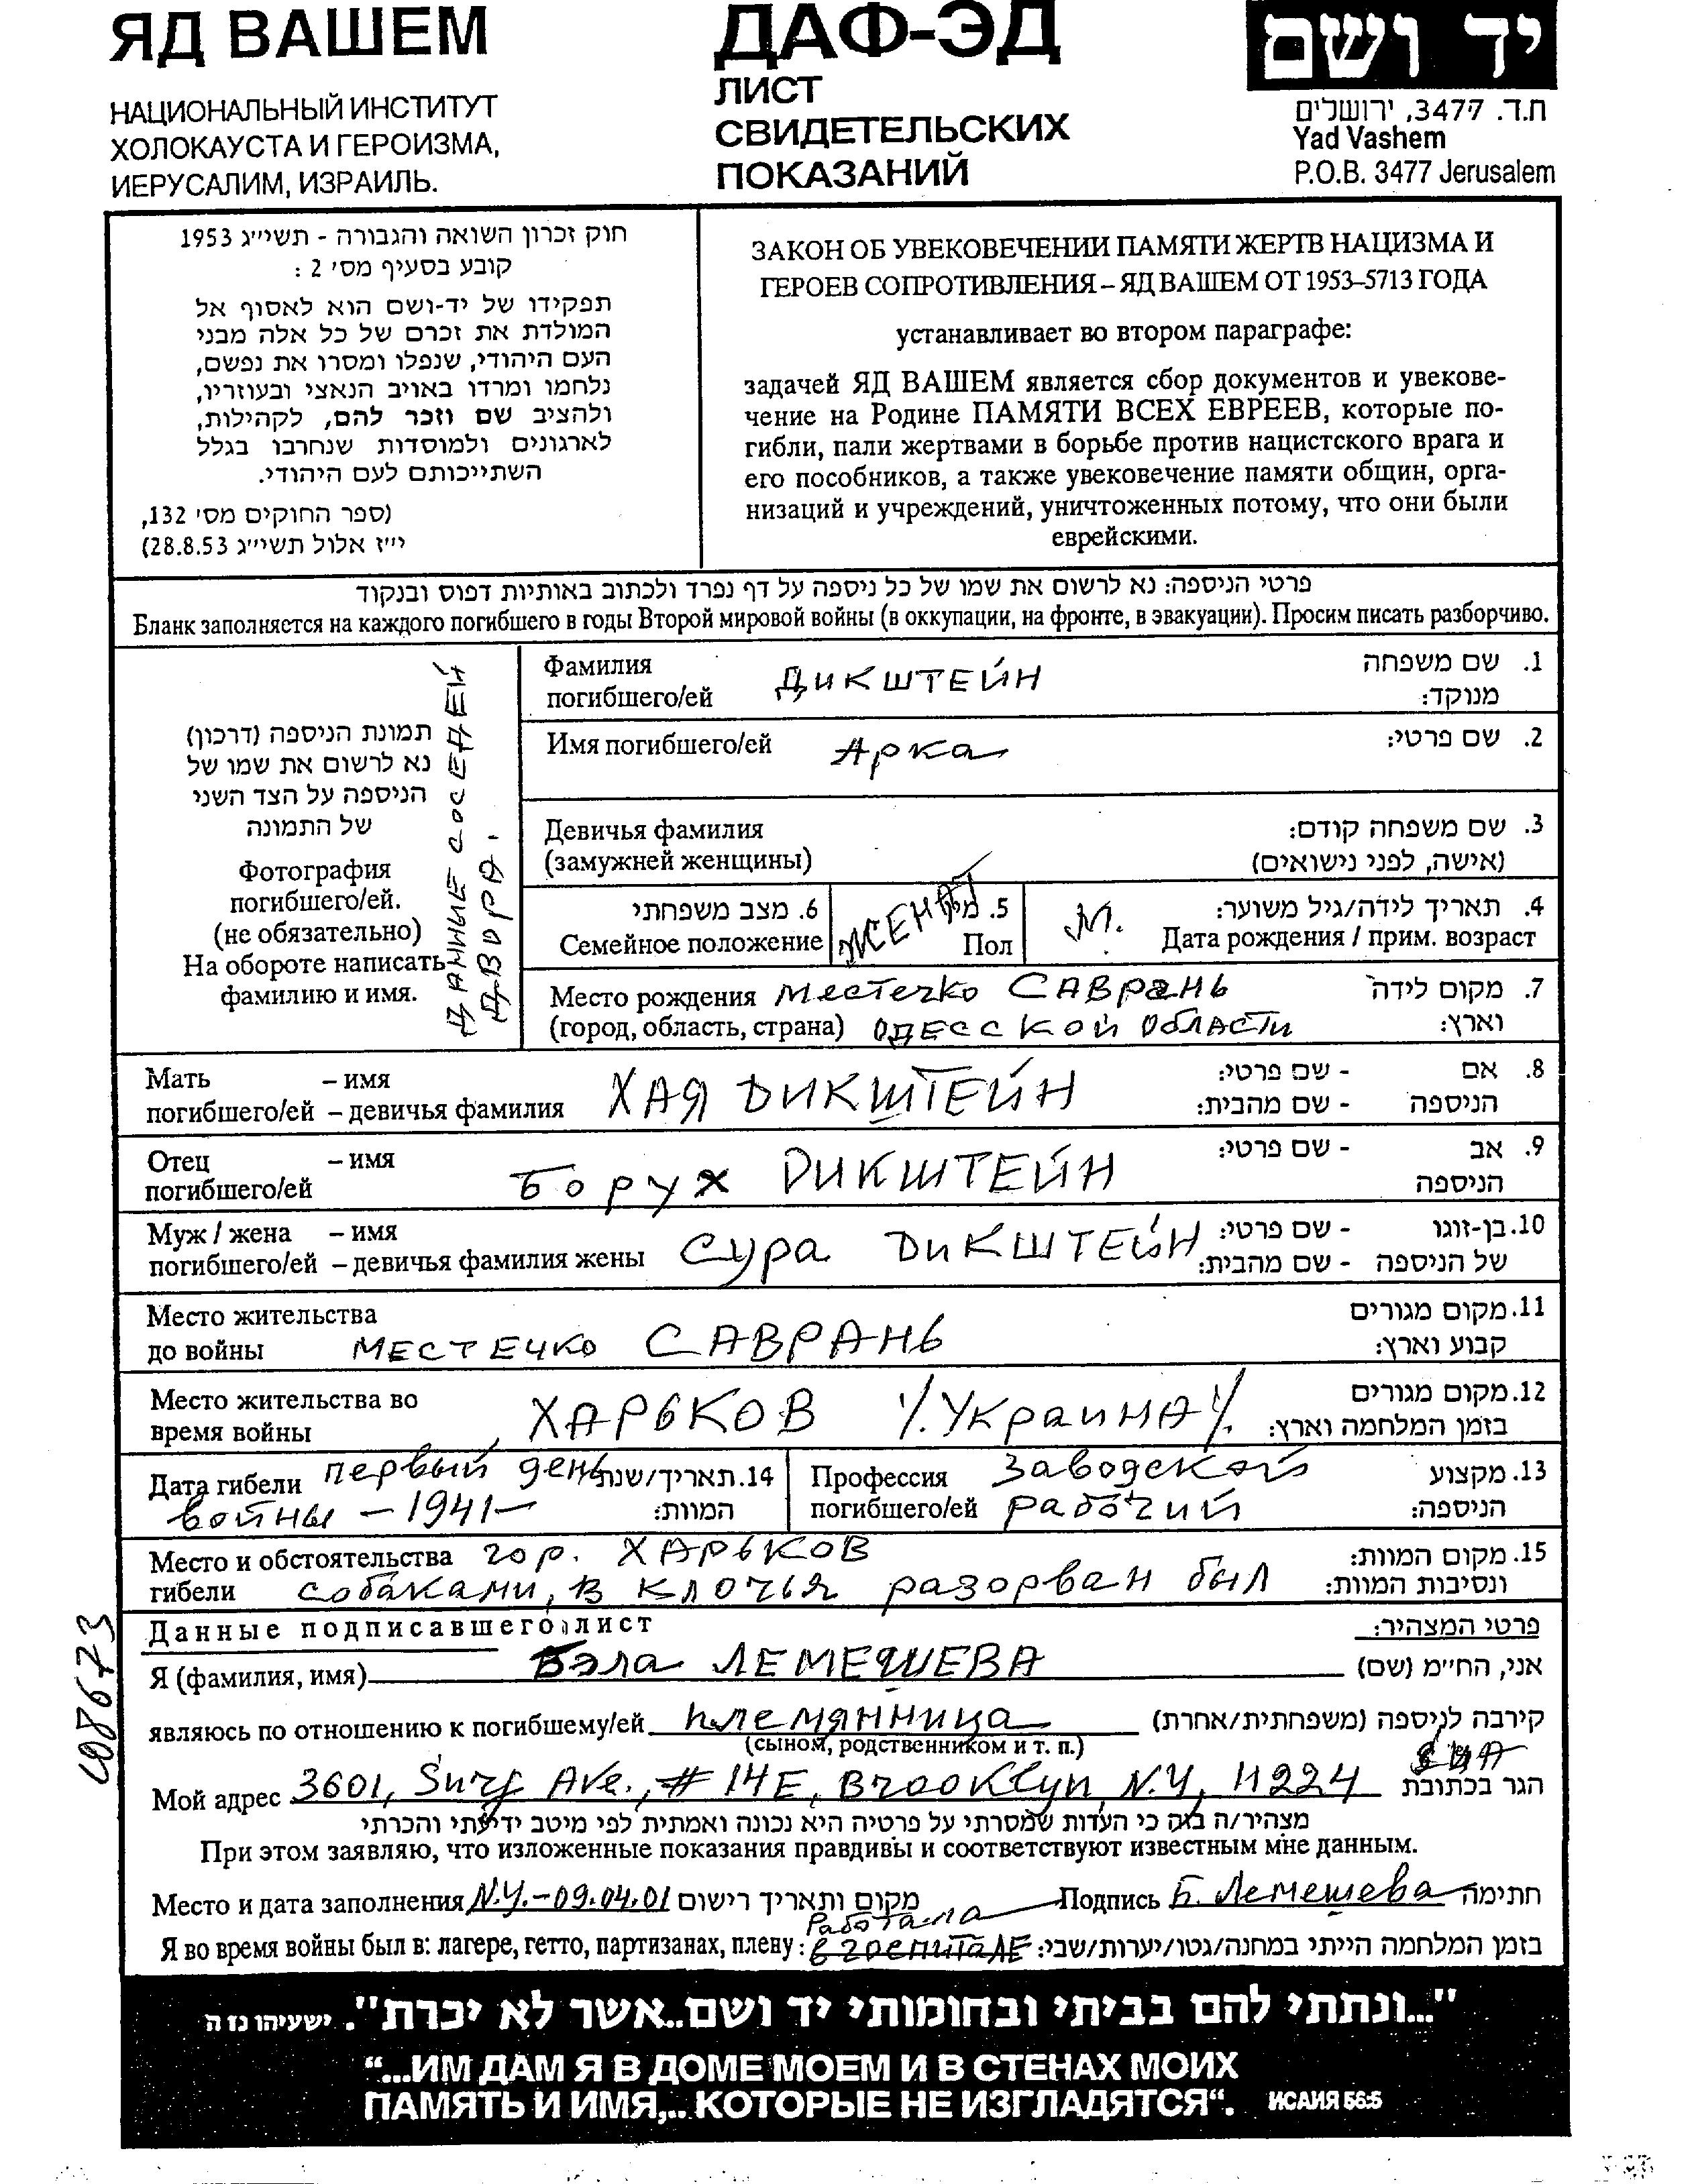 ЯД ВАШЕМ
НАЦИОНАЛЬНЫЙ ИНСТИТУТ
ХОЛОКАУСТА И ГЕРОИЗМА,
ИЕРУСАЛИМ, ИЗРАИЛЬ.
ДАФ-ЭД
ЛИСТ
СВИДЕТЕЛЬСКИХ
ПОКАЗАНИЙ
יד ושם
ת.ד. 3477, ירושלים
Yad Vashem
P.O.B. 3477 Jerusalem
חוק זכרון השואה והגבורה - תשי״ג 1953
קובע בסעיף מס׳ 2 :
תפקידו של יד-ושם הוא לאסוף אל
המולדת את זכרם של כל אלה מבני
העם היהודי, שנפלו ומסרו את נפשם,
נלחמו ומרדו באויב הנאצי ובעוזריו,
ולהציב שם וזכר להם, לקהילות,
לארגונים ולמוסדות שנחרבו בגלל
השתייכותם לעם היהודי.
(ספר החוקים מס׳ 132,
י״ז אלול תשי״ג 28.8.53)
ЗАКОН ОБ УВЕКОВЕЧЕНИИ ПАМЯТИ ЖЕРТВ НАЦИЗМА И
ГЕРОЕВ СОПРОТИВЛЕНИЯ – ЯД ВАШЕМ ОТ 1953–5713 ГОДА
устанавливает во втором параграфе:
задачей ЯД ВАШЕМ является сбор документов и увекове-
чение на Родине ПАМЯТИ ВСЕХ ЕВРЕЕВ, которые по-
гибли, пали жертвами в борьбе против нацистского врага и
его пособников, а также увековечение памяти общин, орга-
низаций и учреждений, уничтоженных потому, что они были
еврейскими.
פרטי הניספה: נא לרשום את שמו של כל ניספה על דף נפרד ולכתוב באותיות דפוס ובנקוד
Бланк заполняется на каждого погибшего в годы Второй мировой войны (в оккупации, на фронте, в эвакуации). Просим писать разборчиво.
תמונת הניספה (דרכון)
נא לרשום את שמו של
הניספה על הצד השני
של התמונה
Фотография
погибшего/ей.
(не обязательно)
На обороте написать
фамилию и имя.
ДАННЫЕ СОСЕДЕЙ
ДВОРА.
Фамилия ДИКШТЕЙН 1. שם משפחה
погибшего/ей מנוקד:
Имя погибшего/ей Арка 2. שם פרטי:
Девичья фамилия 3. שם משפחה קודם:
(замужней женщины) (אישה, לפני נישואים)
6. מצב משפחתי ЖЕНАТ 5. מין М. 4. תאריך לידה/גיל משוער:
Семейное положение Пол Дата рождения / прим. возраст
Место рождения местечко САВРАНЬ 7. מקום לידה
(город, область, страна) ОДЕССКОЙ ОБЛАСТИ וארץ:
Мать – имя ХАЯ ДИКШТЕЙН - שם פרטי: 8. אם
погибшего/ей – девичья фамилия - שם מהבית: הניספה
Отец – имя Борух ДИКШТЕЙН - שם פרטי: 9. אב
погибшего/ей הניספה
Муж / жена – имя Сура ДИКШТЕЙН - שם פרטי: 10. בן-זוגו
погибшего/ей – девичья фамилия жены - שם מהבית: של הניספה
Место жительства 11. מקום מגורים
до войны МЕСТЕЧКО САВРАНЬ קבוע וארץ:
Место жительства во ХАРЬКОВ /.УКРАИНА/. 12. מקום מגורים
время войны בזמן המלחמה וארץ:
Дата гибели первый день 14. תאריך/שנת
войны – 1941 – המוות:
Профессия Заводской 13. מקצוע
погибшего/ей рабочий הניספה:
Место и обстоятельства гор. ХАРЬКОВ 15. מקום המוות:
гибели собаками, в клочья разорван был ונסיבות המוות:
Данные подписавшего лист פרטי המצהיר:
Я (фамилия, имя) Бэла ЛЕМЕШЕВА אני, הח״מ (שם)
являюсь по отношению к погибшему/ей племянница קירבה לניספה (משפחתית/אחרת)
(сыном, родственником и т. п.)
США
Мой адрес 3601, Surf Ave., # 14E, Brooklyn, N.Y, 11224 הגר בכתובת
מצהיר/ה בזה כי העדות שמסרתי על פרטיה היא נכונה ואמתית לפי מיטב ידיעתי והכרתי
При этом заявляю, что изложенные показания правдивы и соответствуют известным мне данным.
Место и дата заполнения N.Y. – 09.04.01 מקום ותאריך רישום Подпись Б. Лемешева חתימה
Работала
Я во время войны был в: лагере, гетто, партизанах, плену: в госпитале בזמן המלחמה הייתי במחנה/גטו/יערות/שבי:
"...ונתתי להם בביתי ובחומותי יד ושם..אשר לא יכרת". ישעיהו נז ה
“...ИМ ДАМ Я В ДОМЕ МОЕМ И В СТЕНАХ МОИХ
ПАМЯТЬ И ИМЯ,.. КОТОРЫЕ НЕ ИЗГЛАДЯТСЯ“. ИСАИЯ 56:5